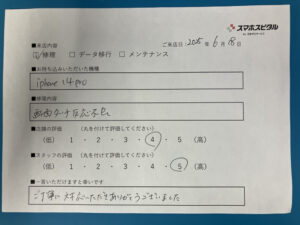 スマホスピタル
ご来店日: 2025年 6月 18日
■来店内容
①修理 □データ移行 □メンテナンス
■お持ち込みいただいた機種
iphone 14 pro
■修理内容
画面タッチ反応不良
■店舗の評価 (丸を付けて評価してください)
(低) 1 ・ 2 ・ 3 ・ 4 ・ 5 (高)
■スタッフの評価 (丸を付けて評価してください)
(低) 1 ・ 2 ・ 3 ・ 4 ・ 5 (高)
■一言いただけますと幸いです
ご丁寧に対応いただきありがとうございました